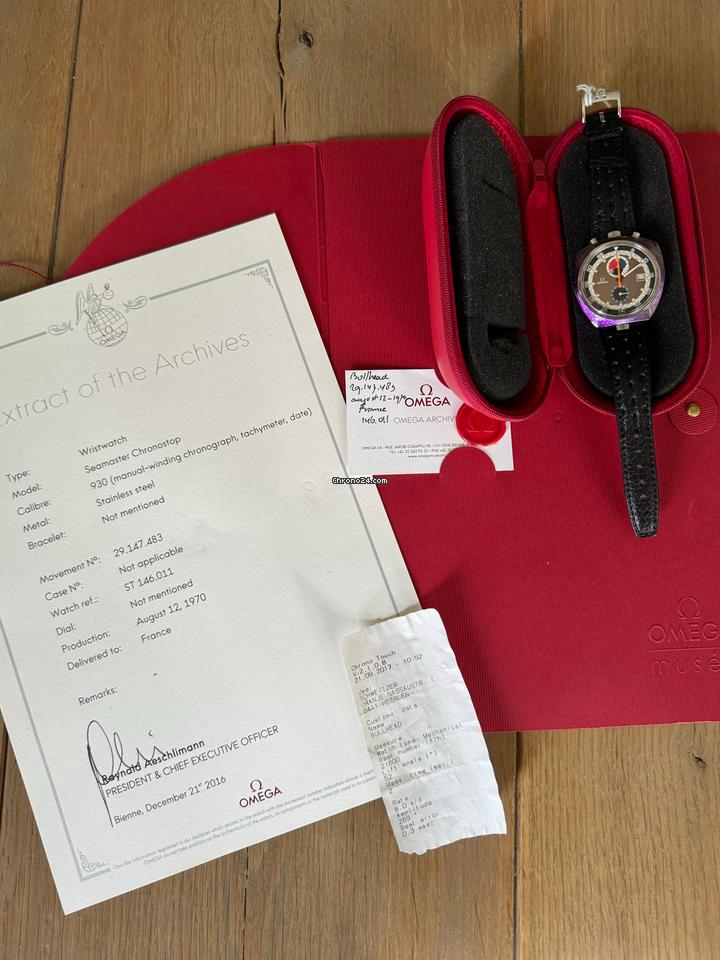 OMEGA
Extract of the Archives
Type: Wristwatch
Model: Seamaster Chronostop
Calibre: 930 (manual-winding chronograph, tachymeter, date)
Metal: Stainless steel
Bracelet: Not mentioned
Movement N°: 29.147.483
Case N°: Not applicable
Watch ref.: ST 146.011
Dial: Not mentioned
Production: August 12, 1970
Delivered to: France
Remarks: -
Raynald Aeschlimann
PRESIDENT & CHIEF EXECUTIVE OFFICER
Bienne, December 21st 2016
Ω
OMEGA
Bullhead
29.147.483
august 12-1970
France
146.011
Ω
OMEGA
OMEGA ARCHIV
Chrono24.com
Chrono Touch
V.2.1.0.8
21.09.2017 - 10:52
User
SCHWEITZER
ORANJE NASSAUSTR. 1
6411 HEERLEN
Custom data
Name
BULLHEAD
Measure
Watch type: Mechanical
Beat number (A/h)
21600
Lift angle (°)
52
Meas. time (sec.)
2
Rate
8.0 s/d
Amplitude
269 °
Beat error
0.3 msec
Ω
OMEG
musé